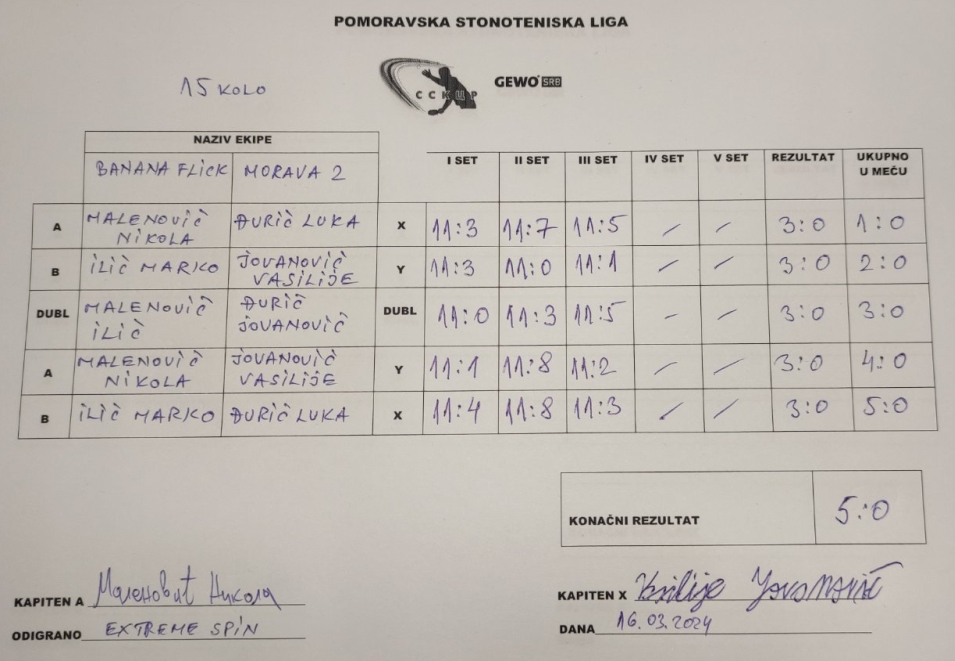 POMORAVSKA STONOTENISKA LIGA
15 KOLO
ССКЦР
GEWO SRB
NAZIV EKIPE
BANANA FLICK MORAVA 2 I SET II SET III SET IV SET V SET REZULTAT UKUPNO U MEČU
A MALENOVIČ NIKOLA ĐURIČ LUKA X 11:3 11:7 11:5 / / 3:0 1:0
B ILIČ MARKO JOVANOVIČ VASILIJE Y 11:3 11:0 11:1 / / 3:0 2:0
DUBL MALENOVIČ ILIČ ĐURIČ JOVANOVIČ DUBL 11:0 11:3 11:5 / / 3:0 3:0
A MALENOVIČ NIKOLA JOVANOVIČ VASILIJE Y 11:1 11:8 11:2 / / 3:0 4:0
B ILIČ MARKO ĐURIČ LUKA X 11:4 11:8 11:3 / / 3:0 5:0
KONAČNI REZULTAT 5:0
KAPITEN A Маленовић Никола
KAPITEN X Vasilije Jovanović
ODIGRANO EXTREME SPIN
DANA 16.03.2024